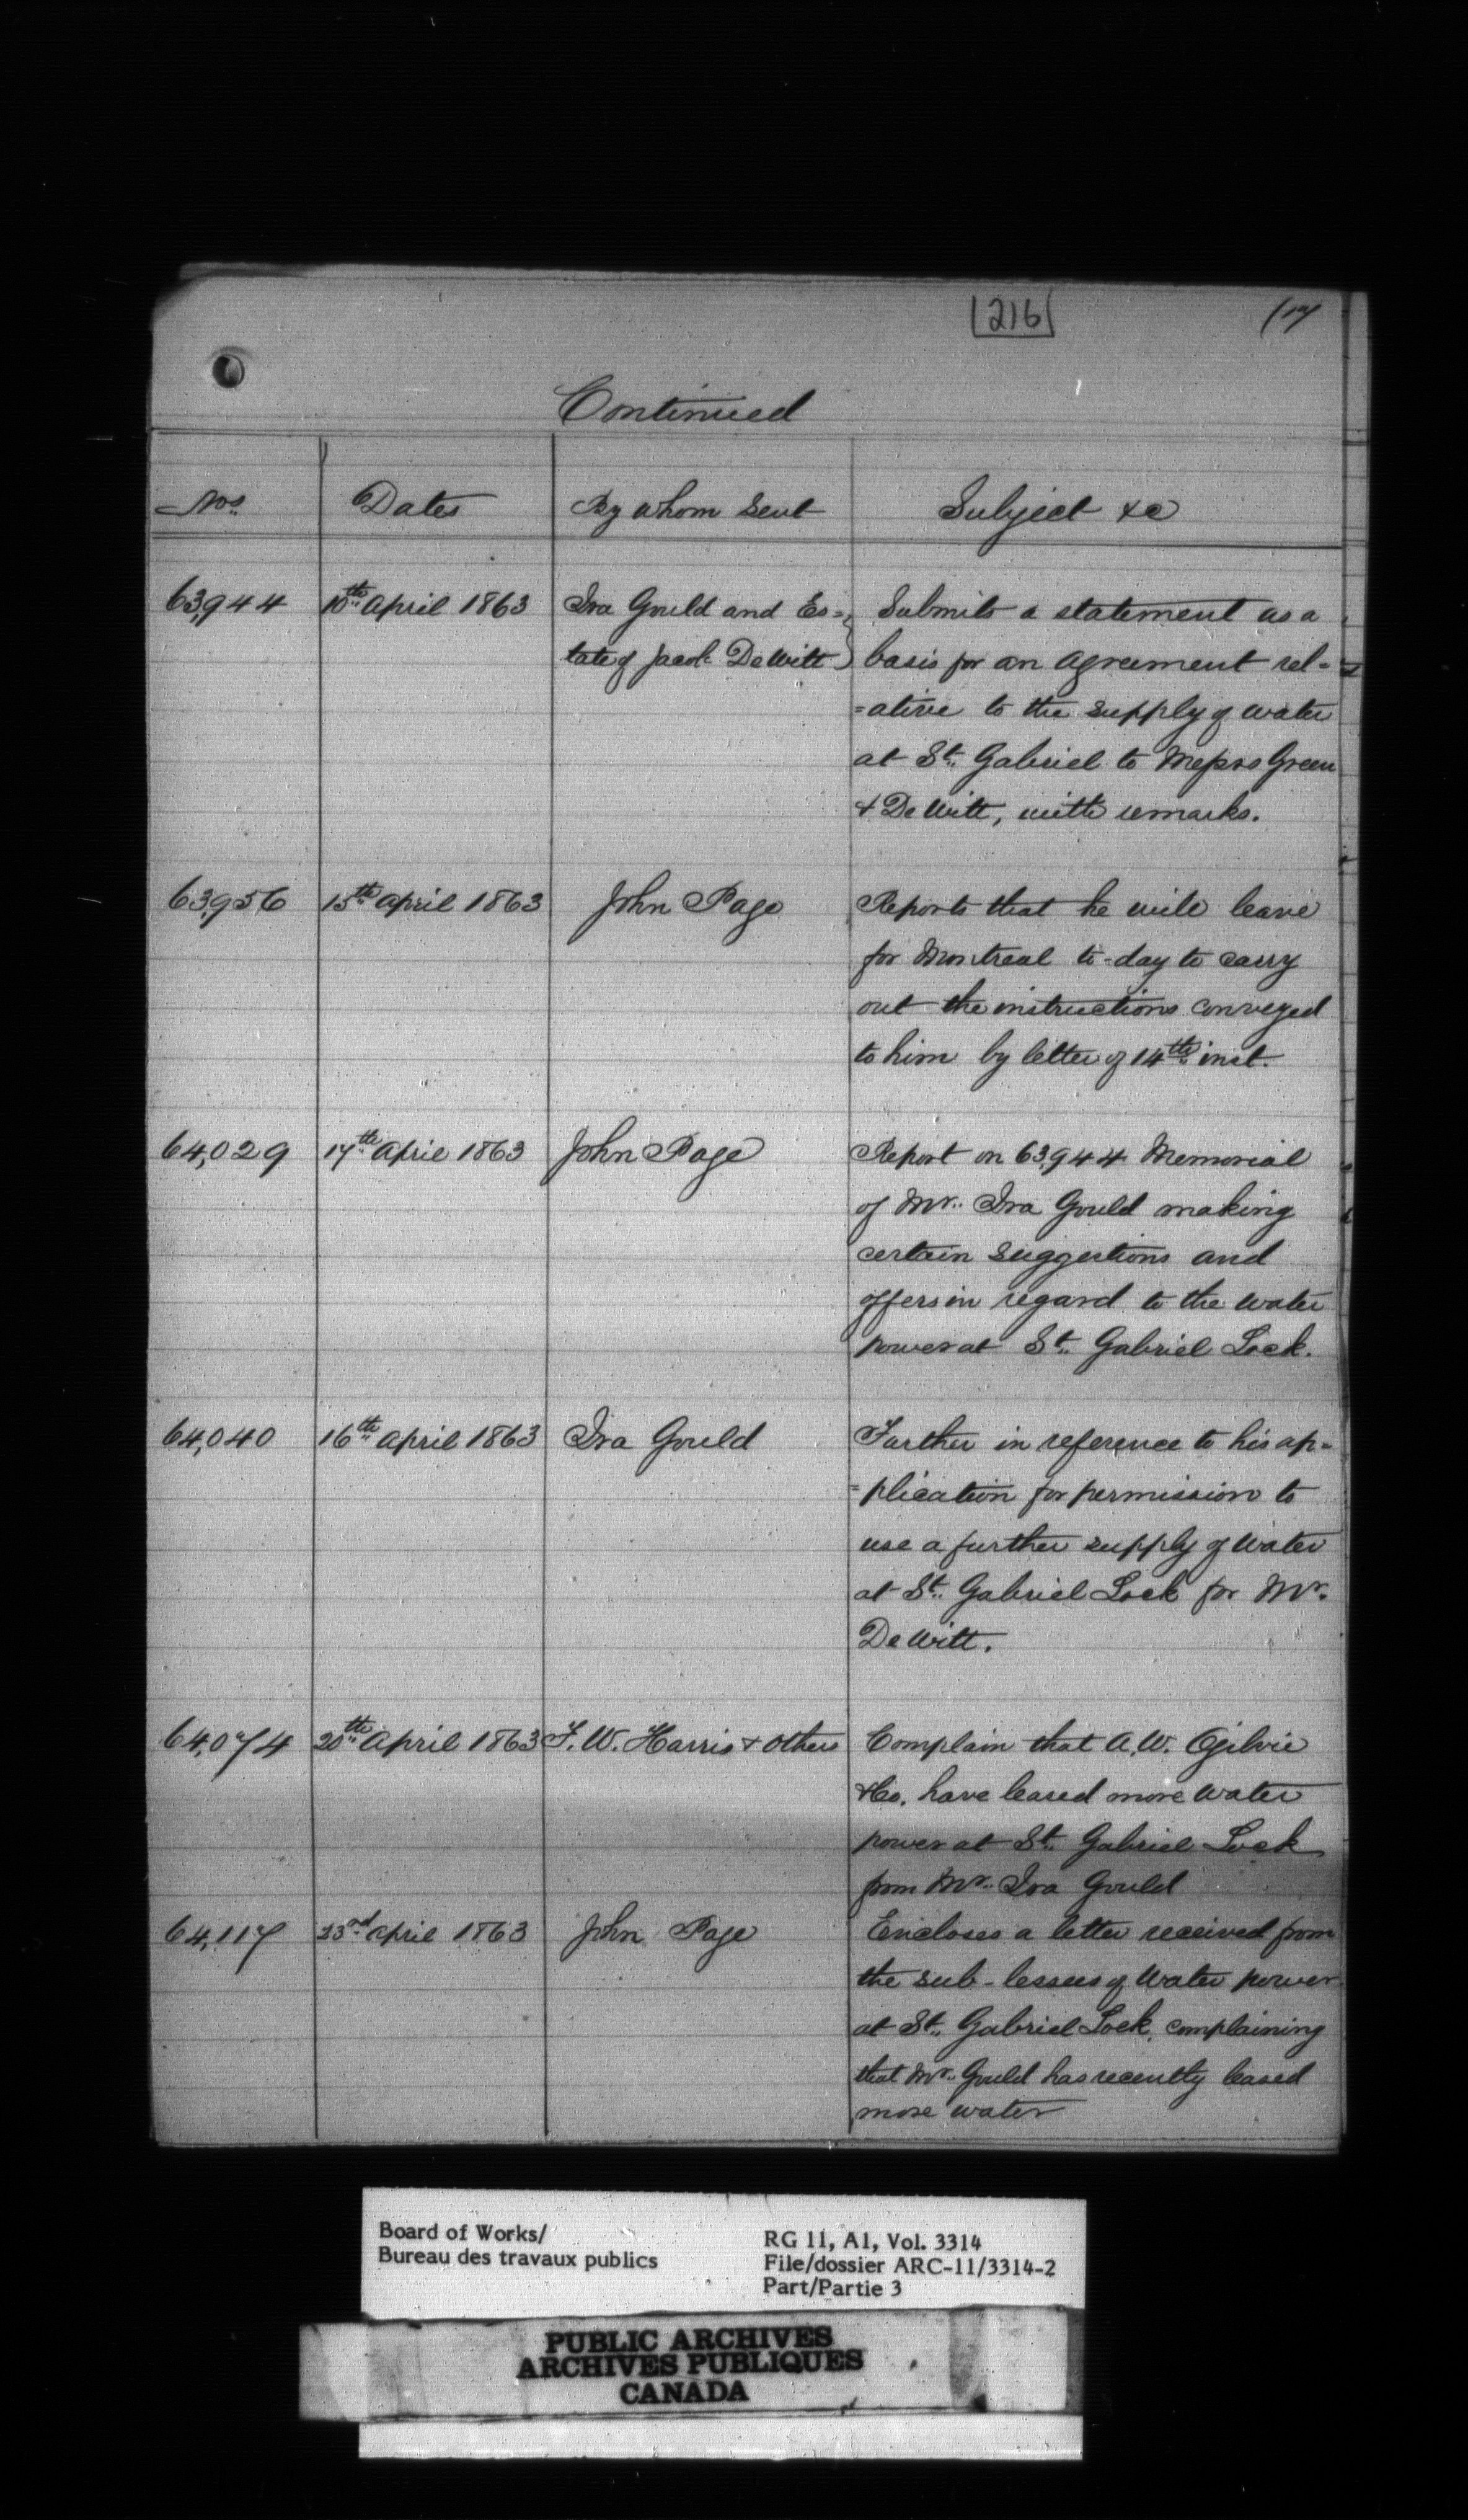 216 (17
Continued
Nos. Dates By whom Sent Subject &c
63,944 10th April 1863 Ira Gould and Es= Submits a statement as a
tate of Jacob DeWitt } basis for an agreement rel=
=ative to the supply of water
at St. Gabriel to Messrs Green
& DeWitt, with remarks.
63,956 15th April 1863 John Page Reports that he will leave
for Montreal to-day to carry
out the instructions conveyed
to him by letter of 14th inst.
64,029 17th April 1863 John Page Report on 63,944 Memorial
of Mr. Ira Gould making
certain suggestions and
offers in regard to the water
power at St. Gabriel Lock.
64,040 16th April 1863 Ira Gould Further in reference to his ap=
=plication for permission to
use a further supply of water
at St. Gabriel Lock for Mr.
DeWitt.
64,074 20th April 1863 F. W. Harris & others Complain that A. W. Ogilvie
& Co. have leased more water
power at St. Gabriel Lock
from Mr. Ira Gould
64,117 23rd April 1863 John Page Encloses a letter received from
the sub-lessees of water power
at St. Gabriel Lock, complaining
that Mr. Gould has recently leased
more water
Board of Works/
Bureau des travaux publics
RG 11, A1, Vol. 3314
File/dossier ARC-11/3314-2
Part/Partie 3
PUBLIC ARCHIVES
ARCHIVES PUBLIQUES
CANADA